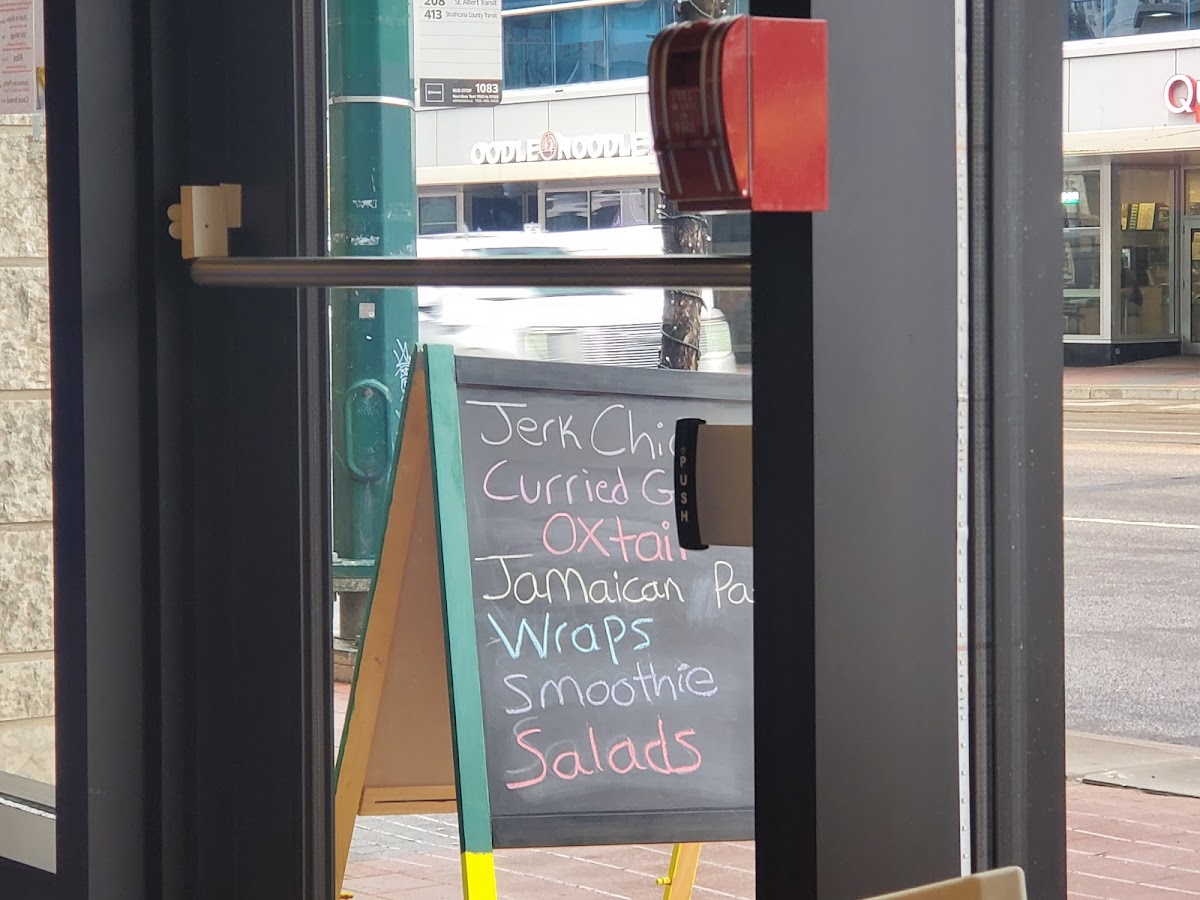 208 St. Albert Transit
413 Strathcona County Transit
BUS STOP 1083
OODLE NOODLE
QU
PUSH
Jerk Chic
Curried G
OXtail
Jamaican Pa
Wraps
Smoothie
Salads